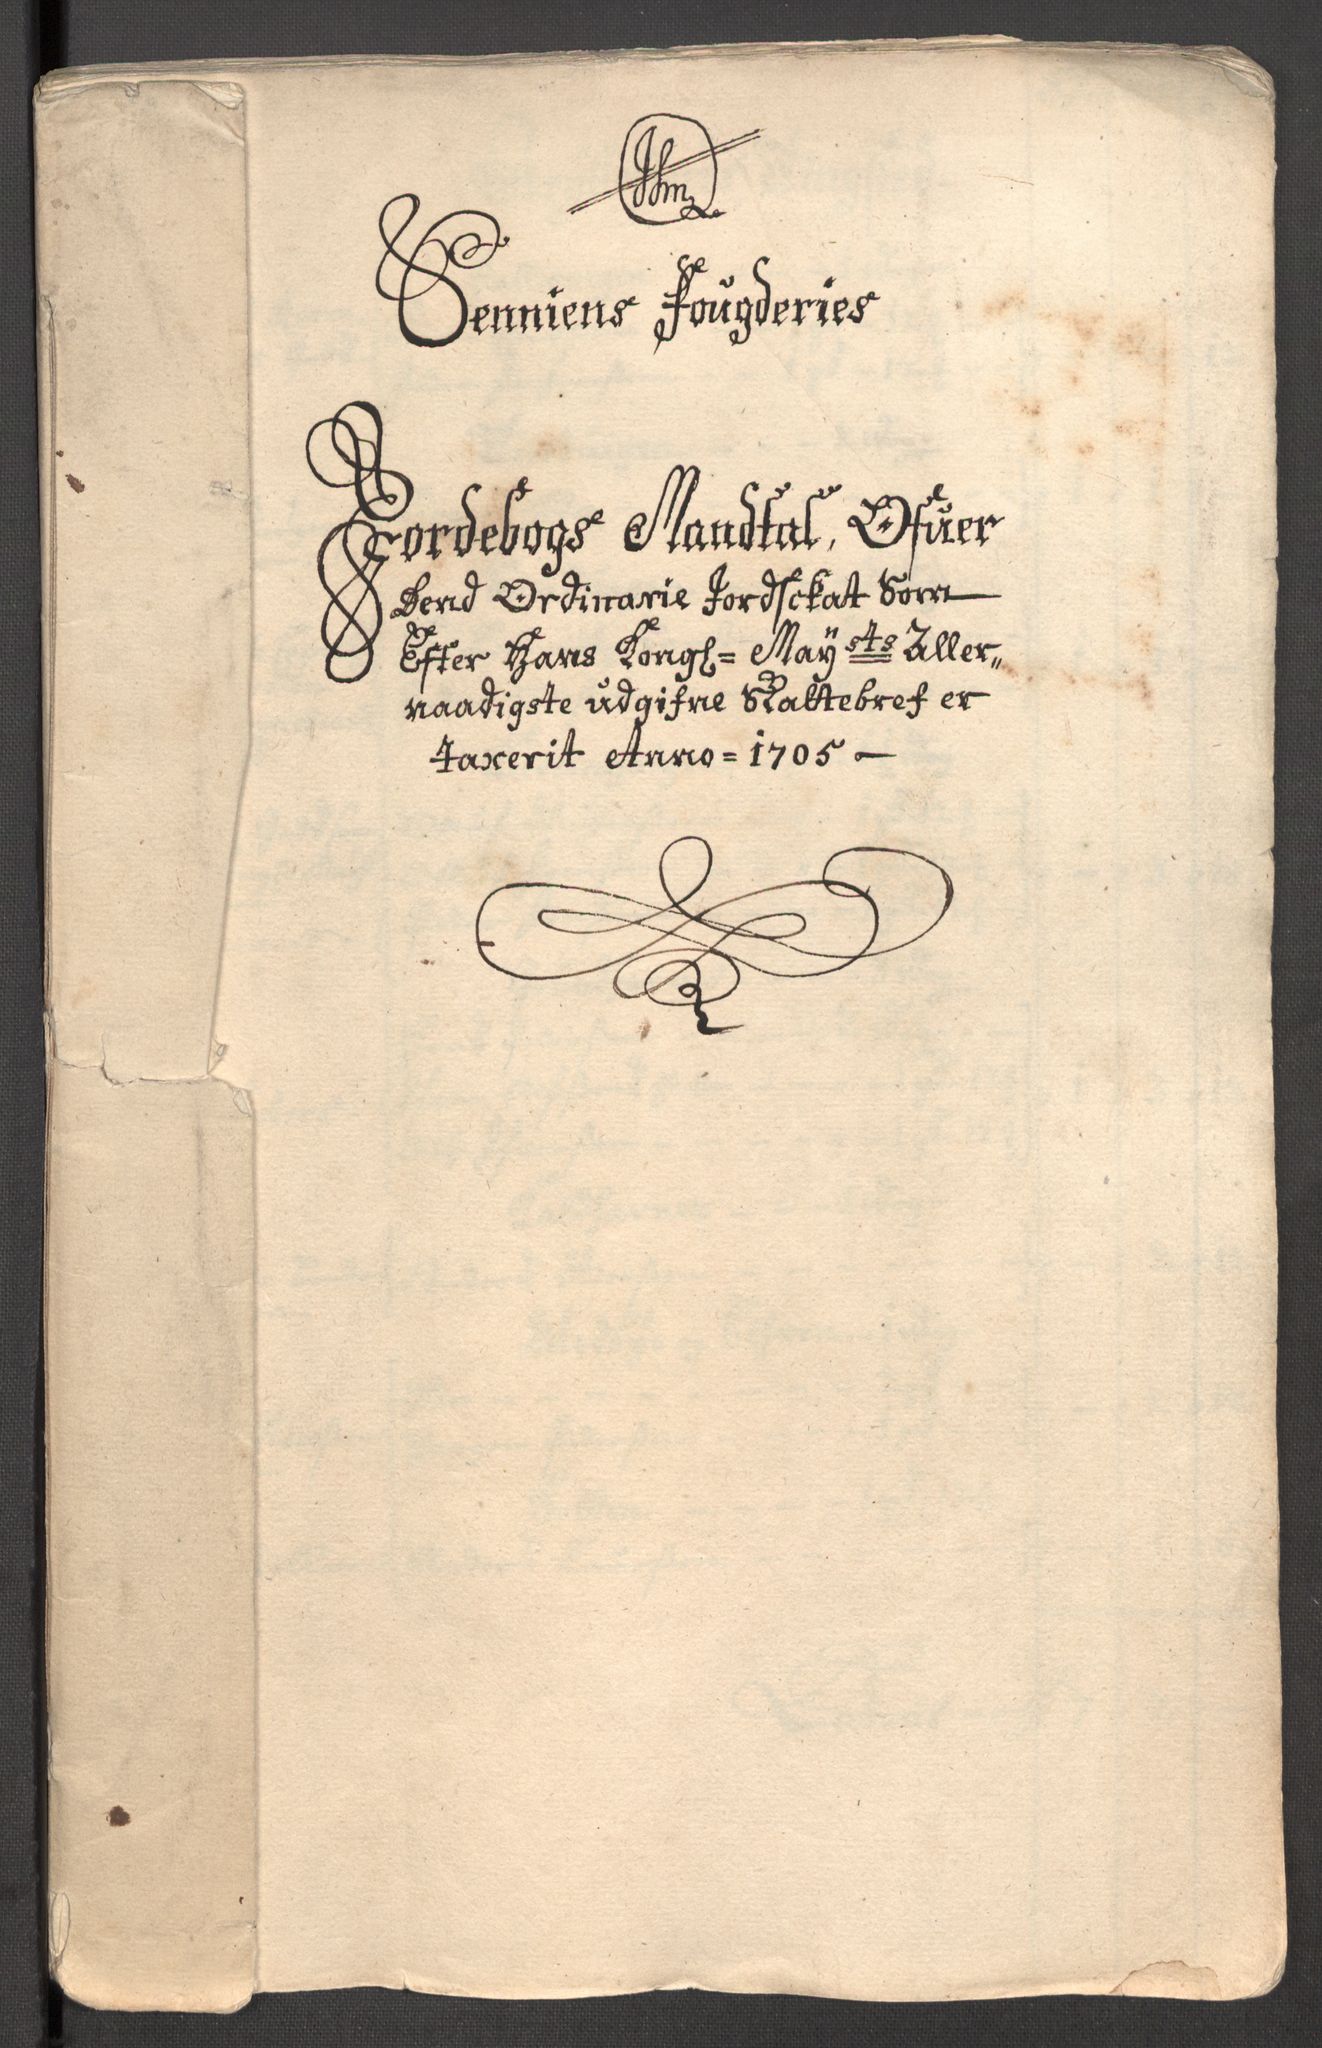 Senniens Fougderies
Jordebogs Mandtal, Ofuer
Dend Ordinarie Jordsckat Som
Efter Hans Kongl= May sts Aller„
naadigste udgifne Skattebref er
taxerit Anno = 1705 —